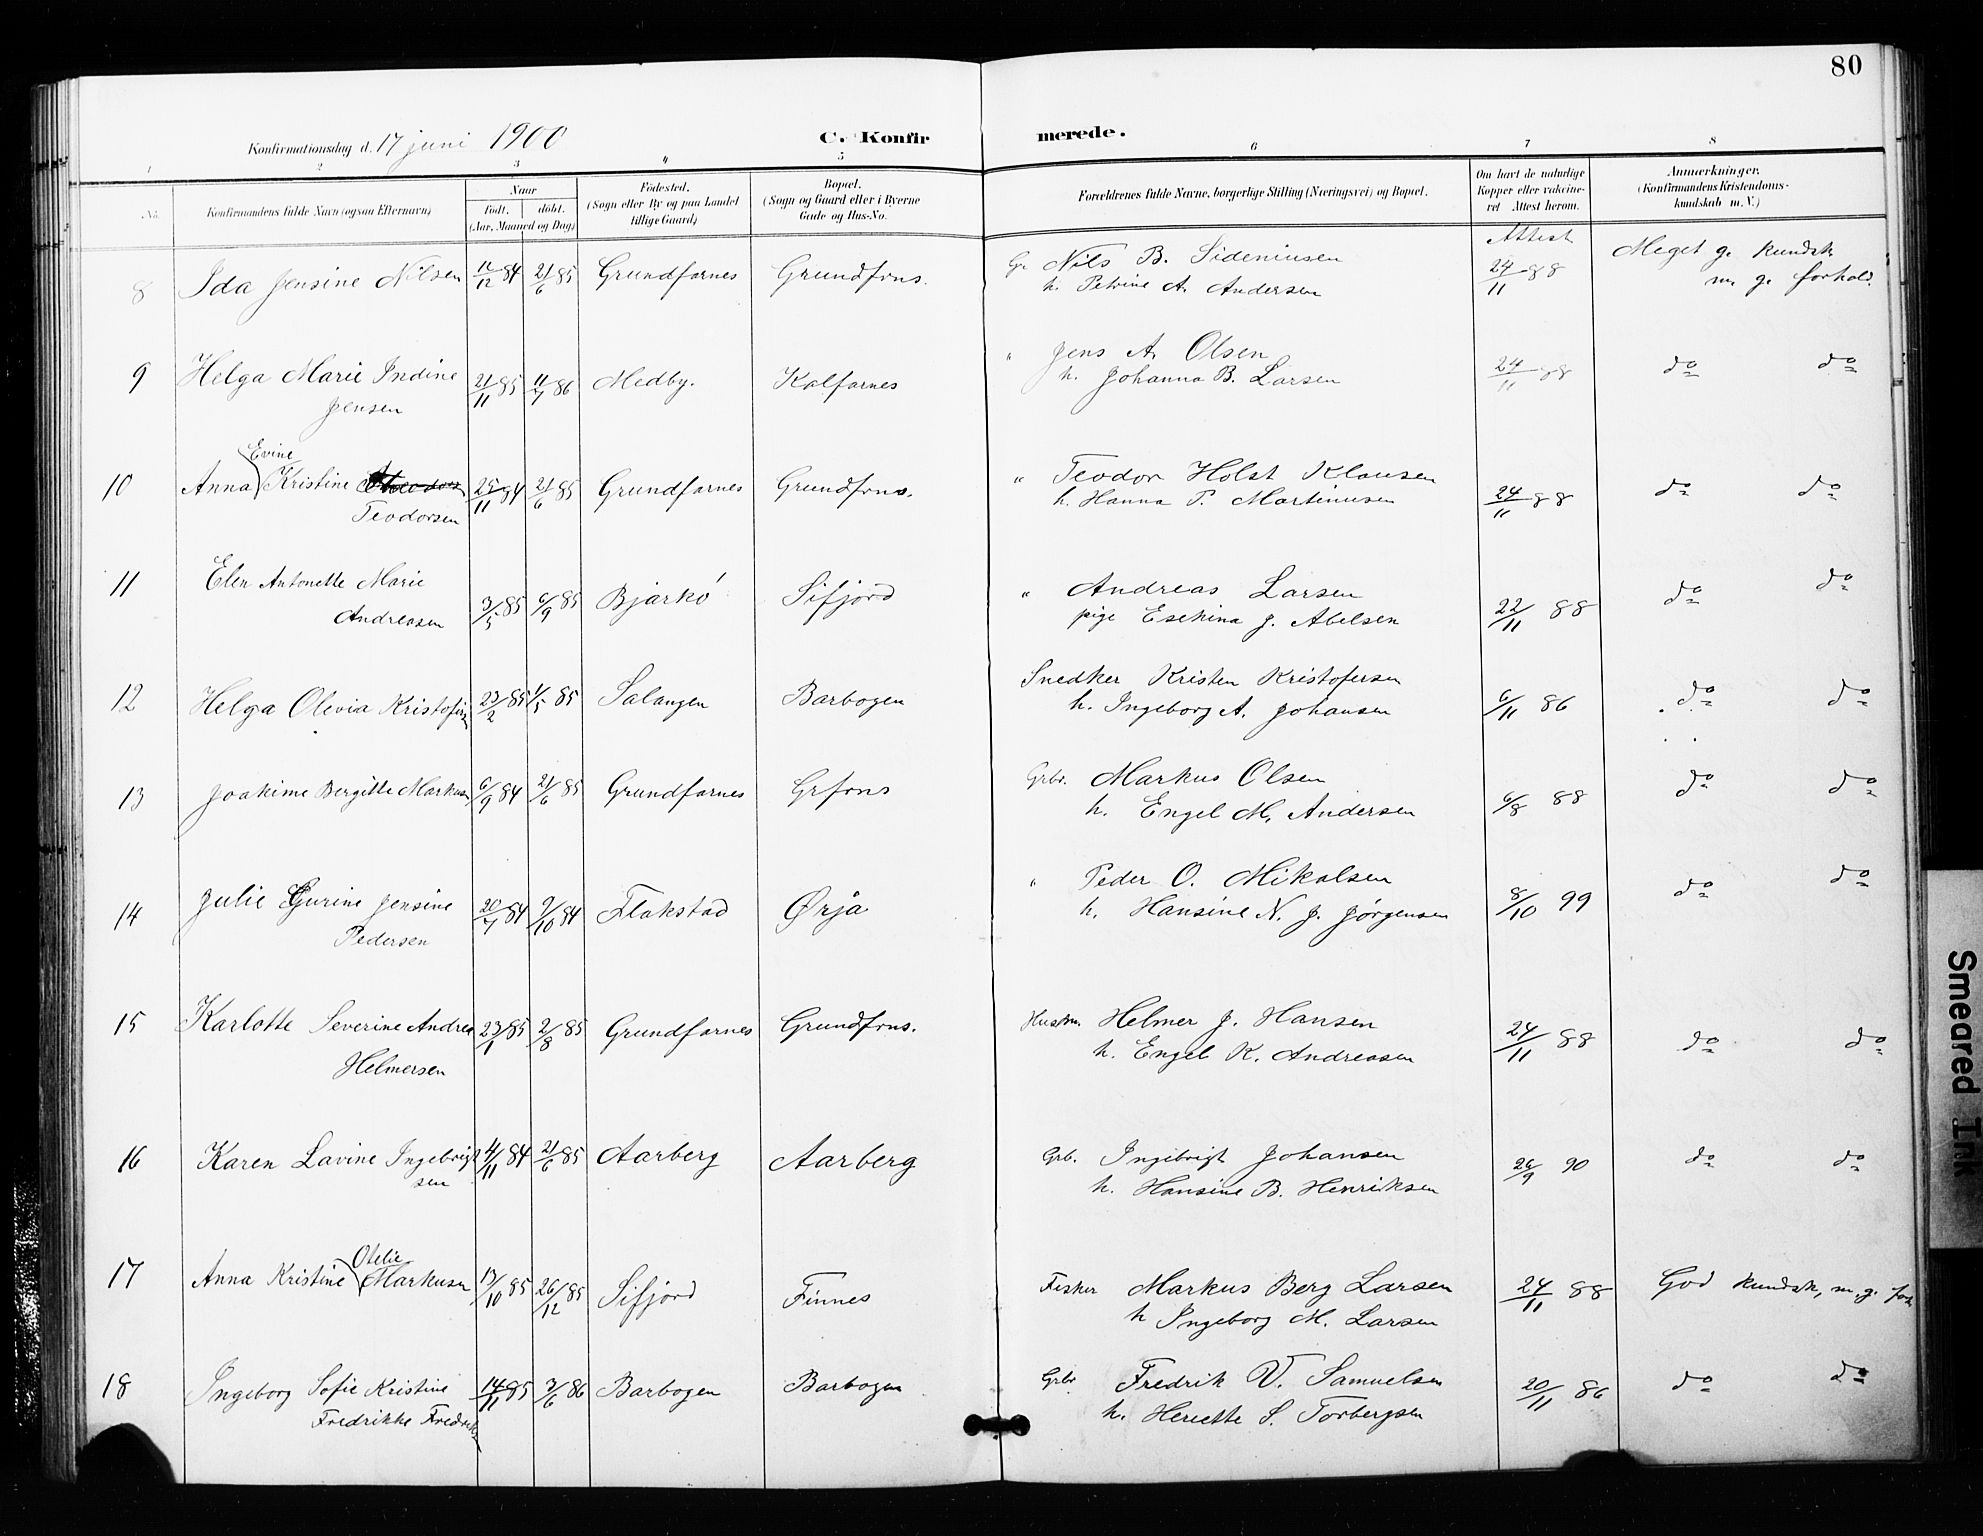 80
Konfirmationsdag d. 17 juni 1900 C. Konfirmerede.
1 2 3 4 5 6 7 8
No. Konfirmandens fulde Navn (ogsaa Efternavn) Naar født. døbt. (Aar, Maaned og Dag) Fødested. (Sogn eller By og paa Landet tillige Gaard) Bopæl. (Sogn og Gaard eller i Byerne Gade og Hus-No. Forældrenes fulde Navne, borgerlige Stilling (Næringsvei) og Bopæl. Om havt de naturlige Kopper eller vaccineret Attest herom. Anmerkninger. (Konfirmandens Kristendomskundskab m. V.)
8 Ida Jensine Nilsen 12/12 84 21/6 85 Grundfarnes Grundfrns. Gr Nils B. Sideniusen Attest 24/11 88 Meget g. kundsk.
h. Petrine A. Andersen m. g. forhol.
9 Helga Marie Indine 21/11 85 11/7 86 Medby. Kalfarnes " Jens A. Olsen 24/11 88 do do
Jensen h. Johanna B. Larsen
Evine
10 Anna Kristine 25/11 84 21/6 85 Grundfarnes Grundfrns. " Teodor Holst Klausen 24/11 88 do do
Teodorsen h. Hanna P. Martinusen
11 Elen Antonette Marie 3/5 85 6/9 85 Bjarkö Sifjord " Andreas Larsen 22/11 88 do do
Andreasen pige Esekina J. Abelsen
12 Helga Olevia Kristofersen 23/2 85 1/5 85 Salangen Barbogen Snedker Kristen Kristofersen 6/11 86 do do
h. Ingeborg A. Johansen
13 Joakime Bergitte Markusen 6/9 84 21/6 85 Grundfarnes Grfrns Grbr. Markus Olsen 6/8 88 do do
h. Engel M. Andersen
14 Julie Gurine Jensine 20/7 84 9/10 84 Flakstad Ørja " Peder O. Mikalsen 8/10 99 do do
Pedersen h. Hansine N. J. Jørgensen
15 Karlotte Severine Andrea 23/1 85 2/8 85 Grundfarnes Grundfrns. Husm. Helmer J. Hansen 24/11 88 do do
Helmersen h. Engel K. Andreasen
16 Karen Lavine Ingebrigt 4/11 84 21/6 85 Aarberg Aarberg Grb. Ingebrigt Johansen 26/9 90 do do
sen h. Hansine B. Henriksen
Otelie
17 Anna Kristine Markusen 13/10 85 26/12 85 Sifjord Finnes Fisker Markus Berg Larsen 24/11 88 God kundsk, m. g. forh
h Ingeborg M. Larsen
18 Ingeborg Sofie Kristine 14/11 85 3/6 86 Barbogen Barbogen Grbr Fredrik V. Samuelsen 20/11 86 do do
Fredrikke Fredriksen h. Heriette S. Torbergsen
Smeared Ink